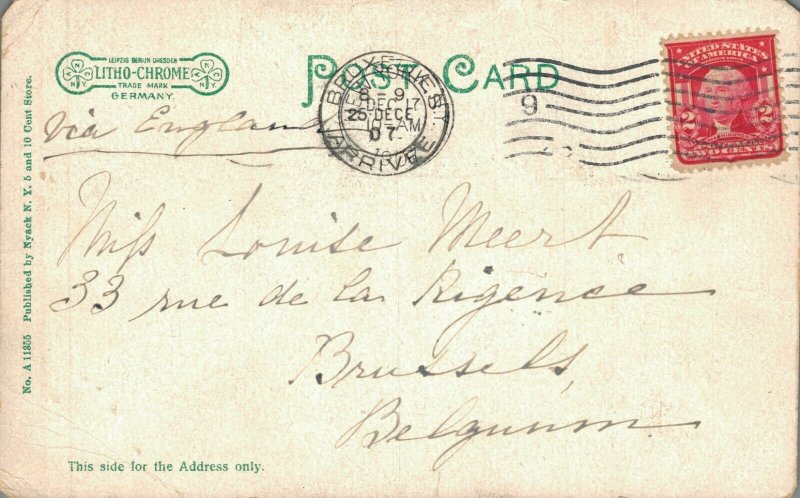 LEIPZIG BERLIN DRESDEN
LITHO-CHROME
TRADE MARK
GERMANY.
POST CARD
8 - 9
DEC 17
25 DECE
AM
07
ARRIVÉE
9
UNITED STATES
OF AMERICA
2 2
Via England
Miss Louise Meert
33 rue de la Rigence
Brussels,
Belguium
No. A 11255 Published by Nyack N. Y. 5 and 10 Cent Store.
This side for the Address only.